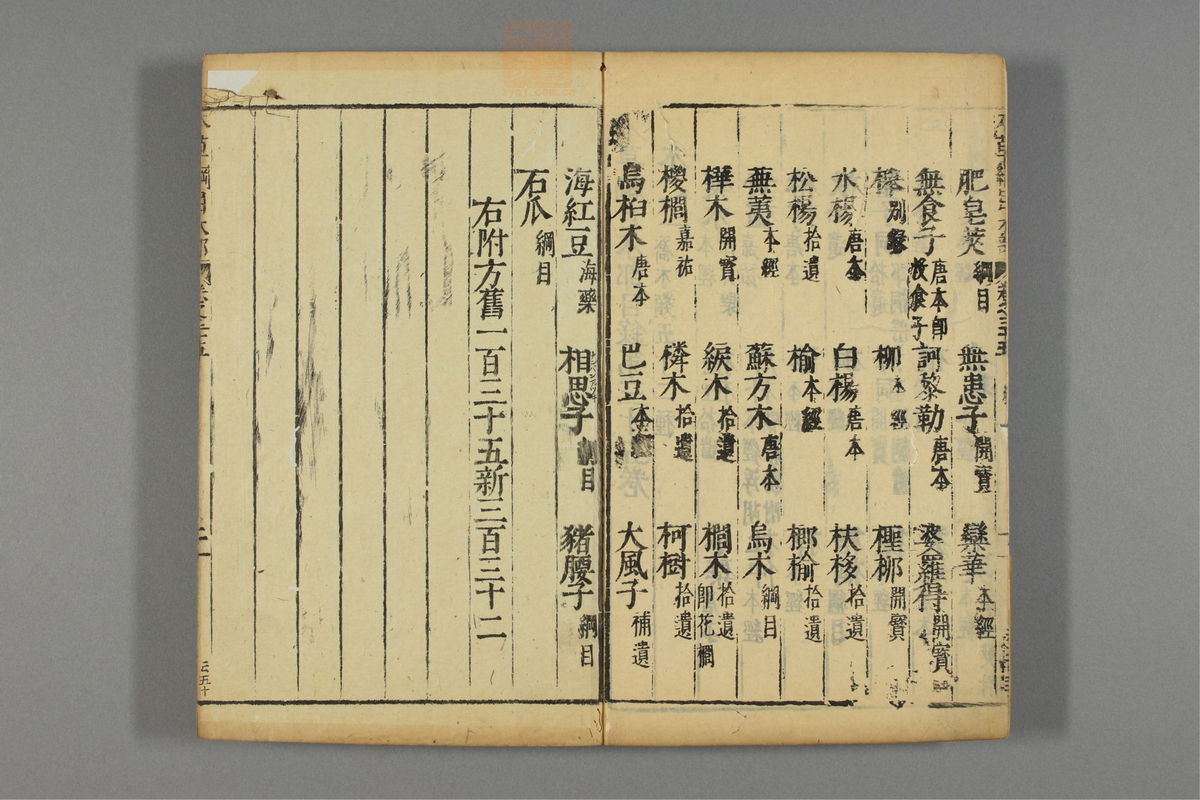 肥皂莢綱目 無患子開寶 欒華本經
無食子唐本即沒食子 訶黎勒唐本 婆羅得開寶
櫸別錄 柳本經 檉柳開寶
水楊唐本 白楊唐本 扶栘拾遺
松楊拾遺 榆本經 榔榆拾遺
蕪荑本經 蘇方木唐本 烏木綱目
樺木開寶 緱木拾遺 櫚木拾遺即花櫚
椶櫚嘉祐 橉木拾遺 柯樹拾遺
烏桕木唐本 巴豆本經 大風子補遺
海紅豆海藥 相思子綱目 豬腰子綱目
石瓜綱目
右附方舊一百三十五新三百三十二